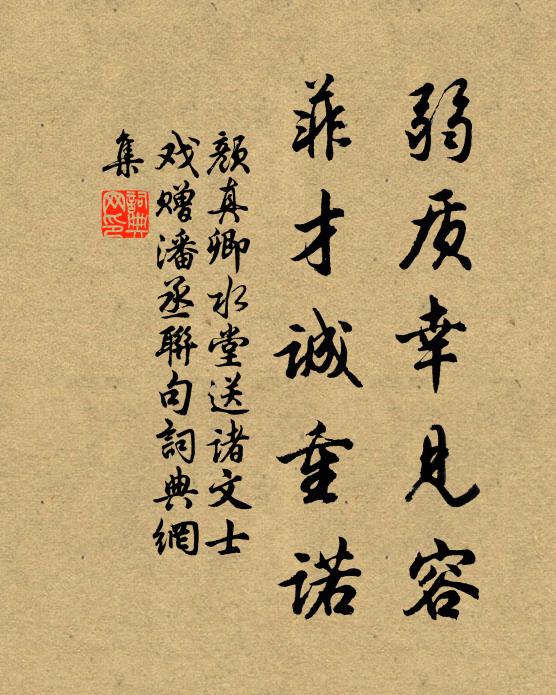 弱质幸見容
菲才誠重诺
颜真卿水堂送诸文士
戏赠潘丞聯句詞典網
集
詞典网印